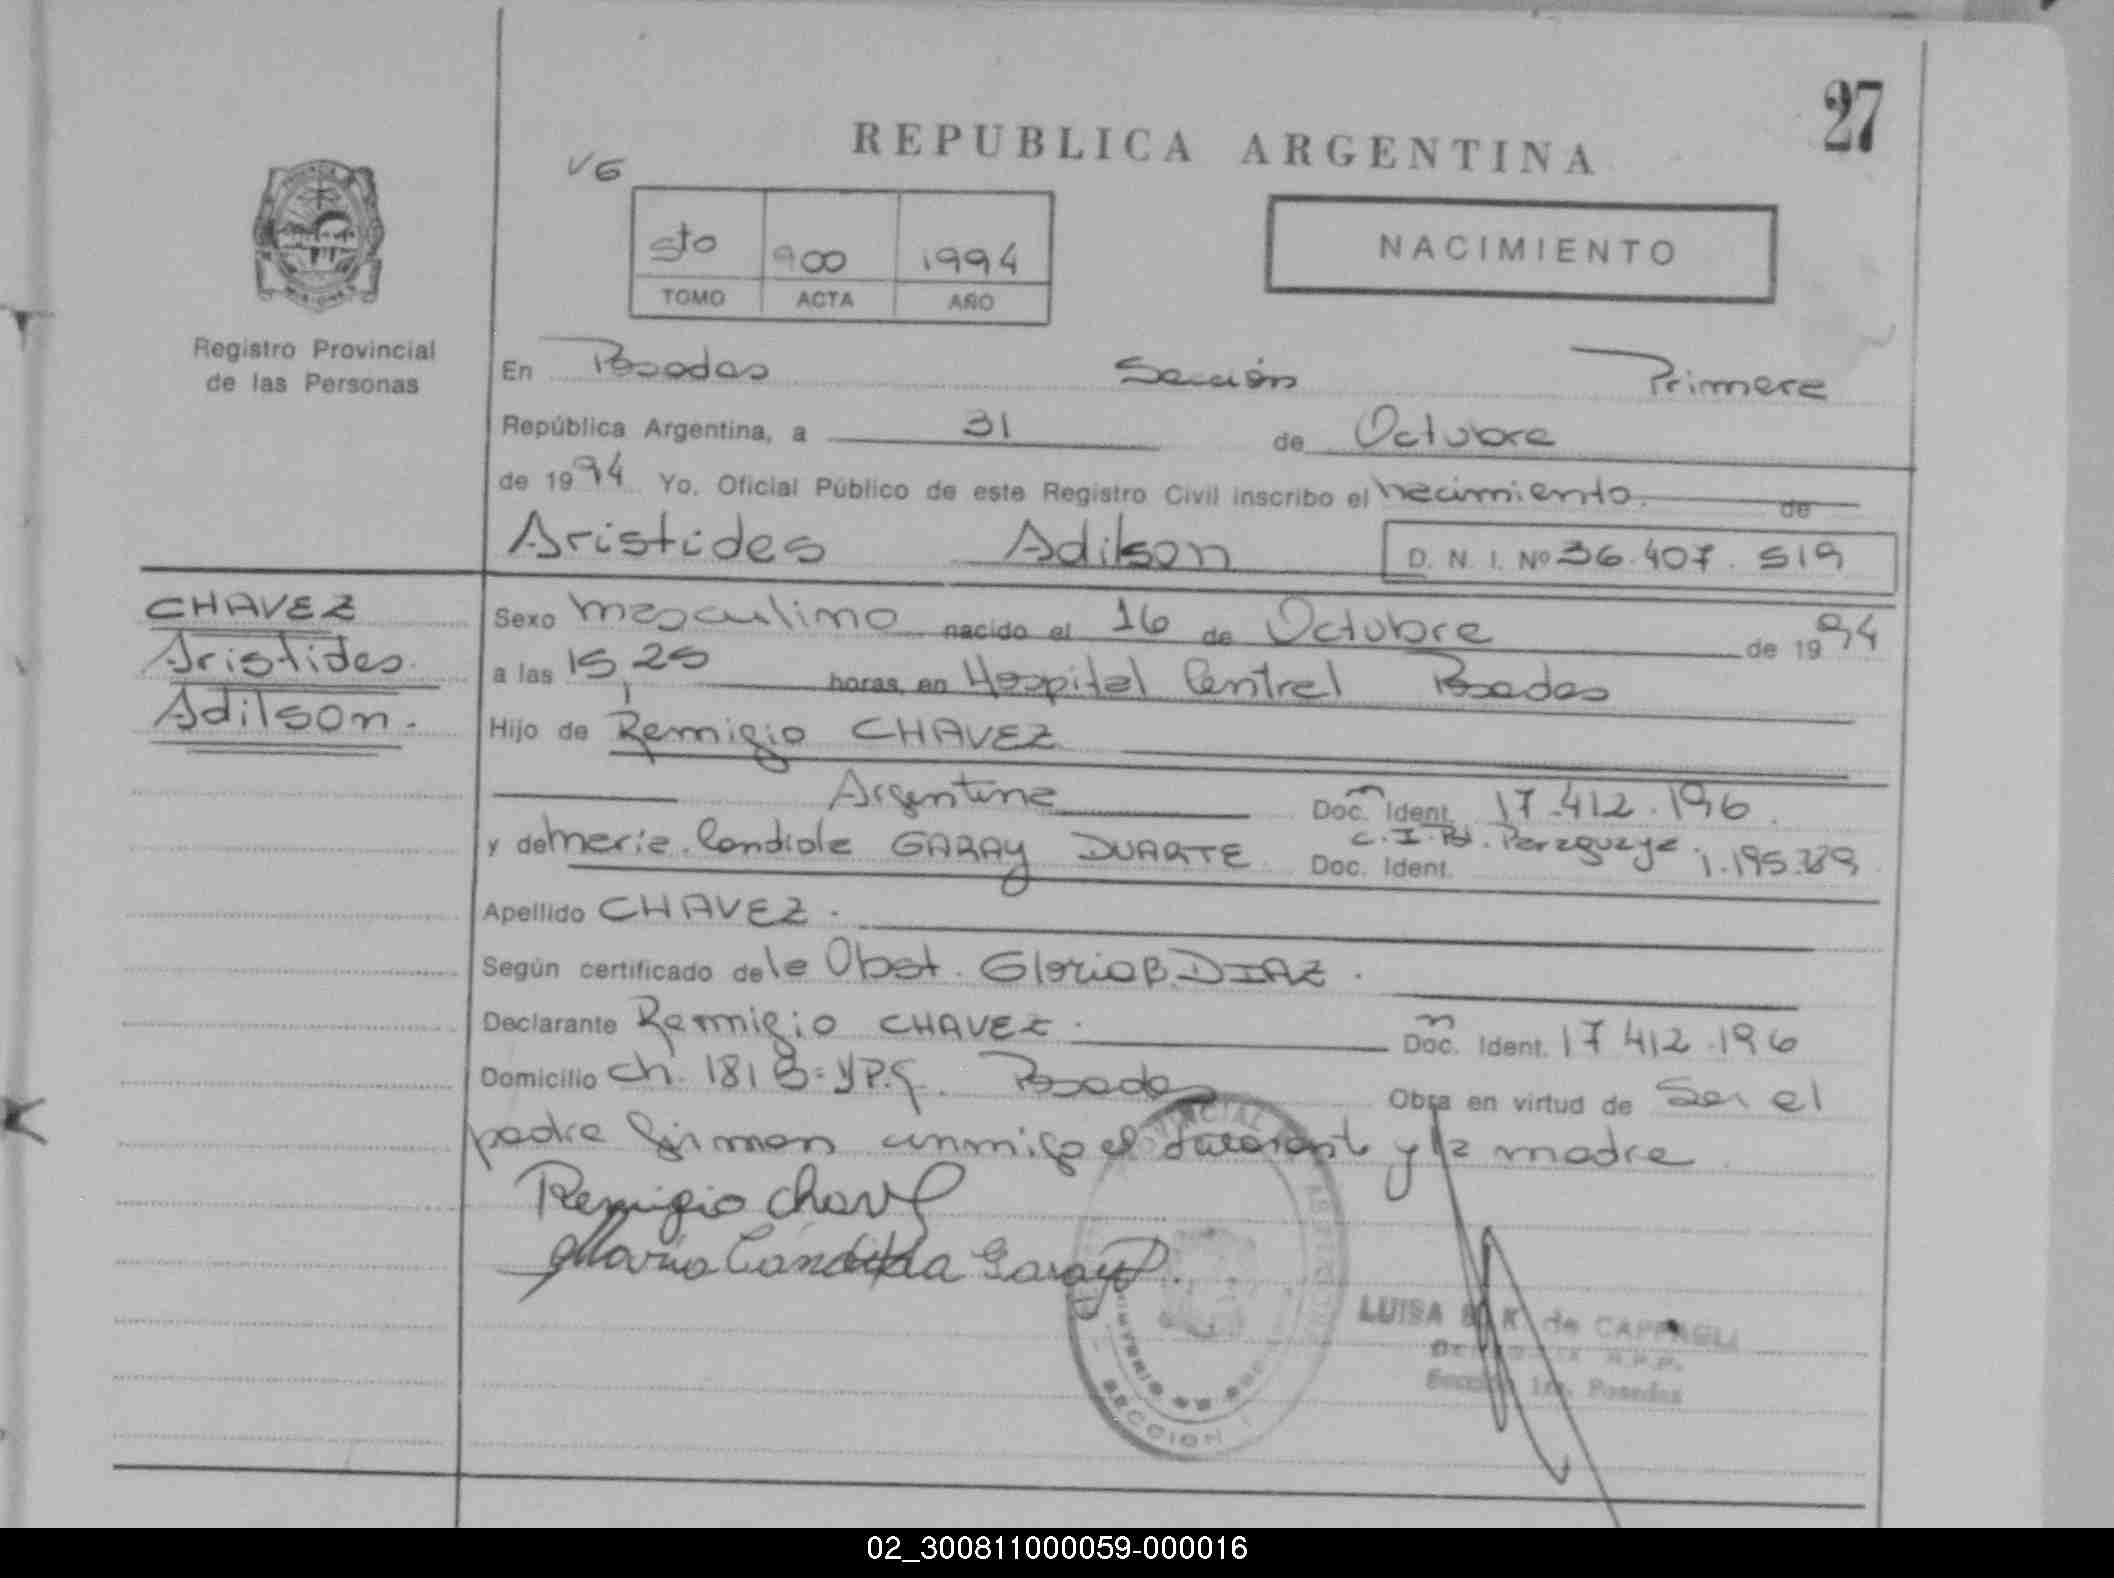 27
REPUBLICA ARGENTINA
V6
5to 900 1994
TOMO ACTA AÑO
NACIMIENTO
Registro Provincial
de las Personas
En Posadas Sección Primera
República Argentina, a 31 de Octubre
de 1994 Yo, Oficial Público de este Registro Civil inscribo el nacimiento. de
Aristides Adilson D. N. I. Nº 36.407.519
CHAVEZ
Aristides
Adilson.
Sexo masculino nacido el 16 de Octubre de 1994
a las 15,25 horas, en Hospital Central Posadas
Hijo de Remigio CHAVEZ
Argentina Doc. Ident. 17.412.196.
y de Maria Candida GARAY DUARTE C.I. Pol. Paraguaya
Doc. Ident. 1.195.789
Apellido CHAVEZ.
Según certificado de la Obst. Gloria B. DIAZ.
Declarante Remigio CHAVEZ. Doc. Ident. 17 412.196
Domicilio Ch. 181 Posadas Obra en virtud de Ser el
padre firman conmigo el y la madre
Remigio Chavez
Maria Candida Garay D.
LUISA K de CAPPAGLI
R.P.P.
Sección 1ra. Posadas
SECCION
02_300811000059-000016